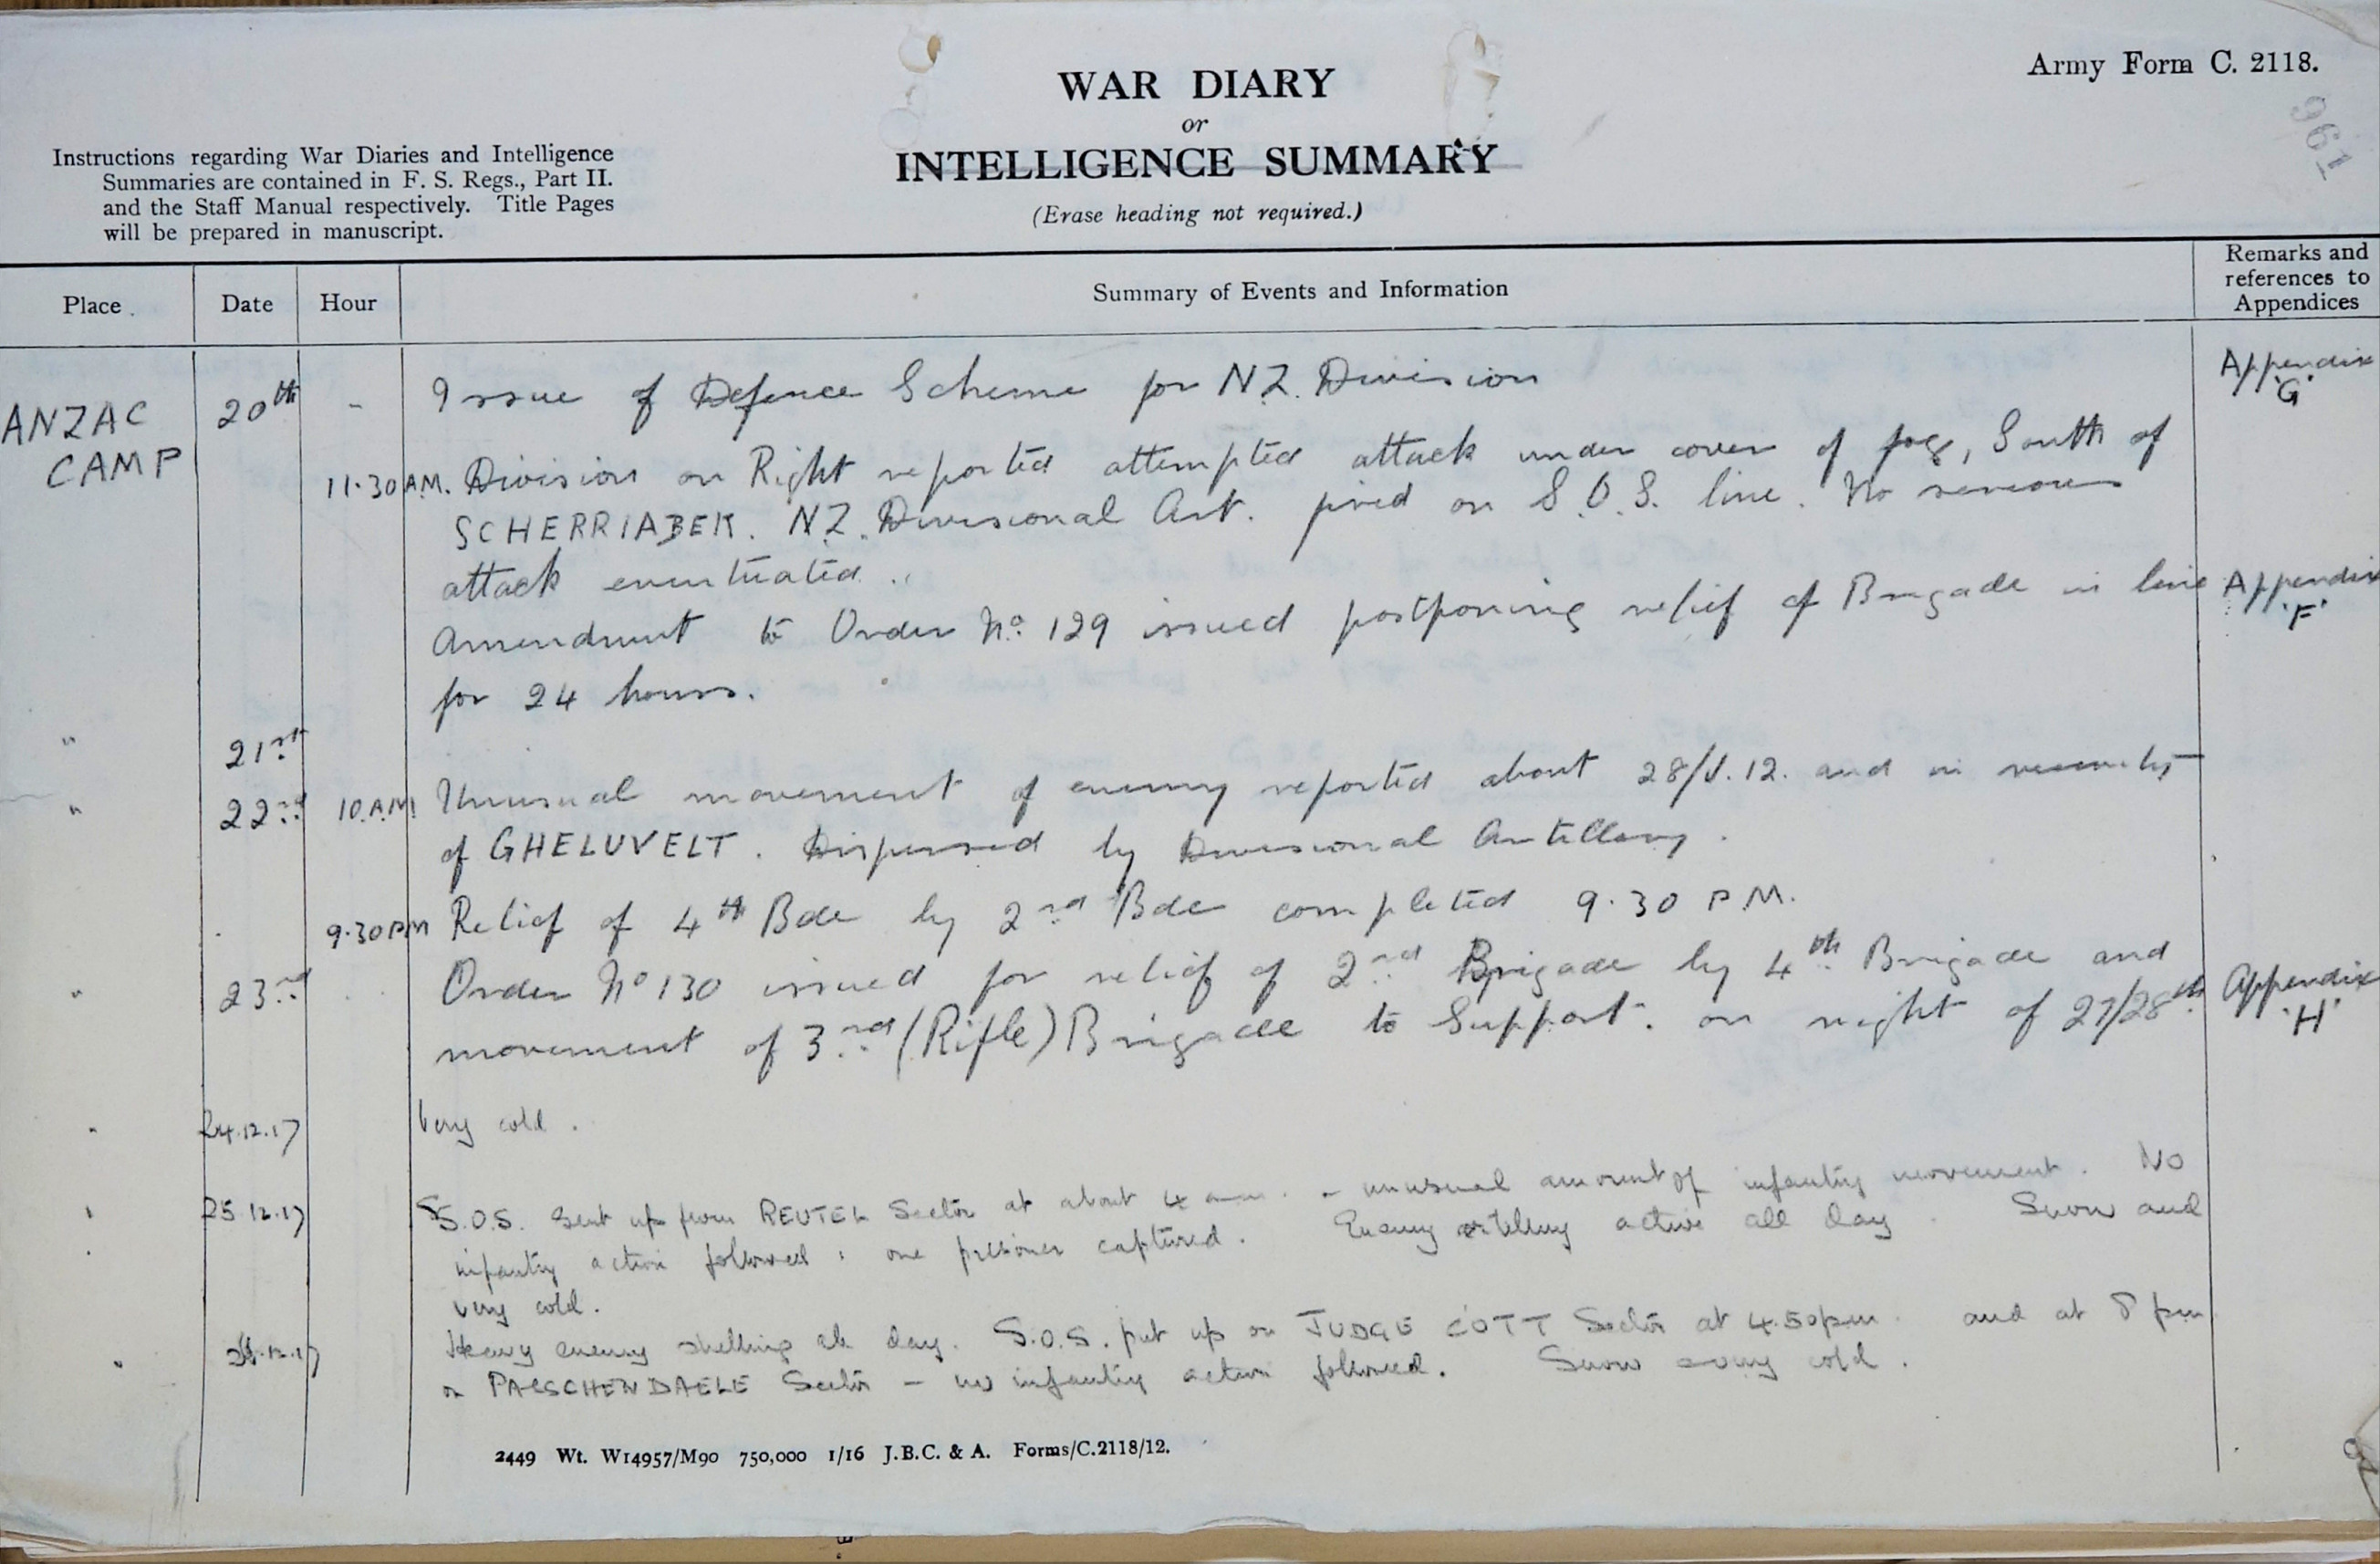 Army Form C. 2118.
WAR DIARY
or
INTELLIGENCE SUMMARY
(Erase heading not required.)
Instructions regarding War Diaries and Intelligence
Summaries are contained in F. S. Regs., Part II.
and the Staff Manual respectively. Title Pages
will be prepared in manuscript.
961
Place Date Hour Summary of Events and Information Remarks and references to Appendices
ANZAC CAMP 20th - Issue of Defence Scheme for N.Z. Division Appendix 'G'
11.30 A.M. Division on Right reported attempted attack under cover of fog, South of
SCHERRIABEK. N.Z. Divisional Art. fired on S.O.S. line. No serious
attack eventuated.
Amendment to Order No. 129 issued postponing relief of Brigade in line Appendix 'F'
for 24 hours.
" 21st
" 22nd 10.A.M. Unusual movement of enemy reported about 28/J.12. and in vicinity
of GHELUVELT. Dispersed by Divisional Artillery.
9.30 PM Relief of 4th Bde by 2nd Bde completed 9.30 P.M.
" 23rd Order No 130 issued for relief of 2nd Brigade by 4th Brigade and Appendix 'H'
movement of 3rd (Rifle) Brigade to Support. on night of 27/28th.
" 24.12.17 Very cold.
" 25.12.17 S.O.S. sent up from REUTEL Sector at about 4 a.m. - unusual amount of infantry movement. No
infantry action followed; one prisoner captured. Enemy artillery active all day. Snow and
very cold.
" .12.17 Heavy enemy shelling all day. S.O.S. put up on JUDGE COTT Sector at 4.50 pm. and at 8 pm
on PASSCHENDAELE Sector - no infantry action followed. Snow & very cold.
2449 Wt. W14957/M90 750,000 1/16 J.B.C. & A. Forms/C.2118/12.